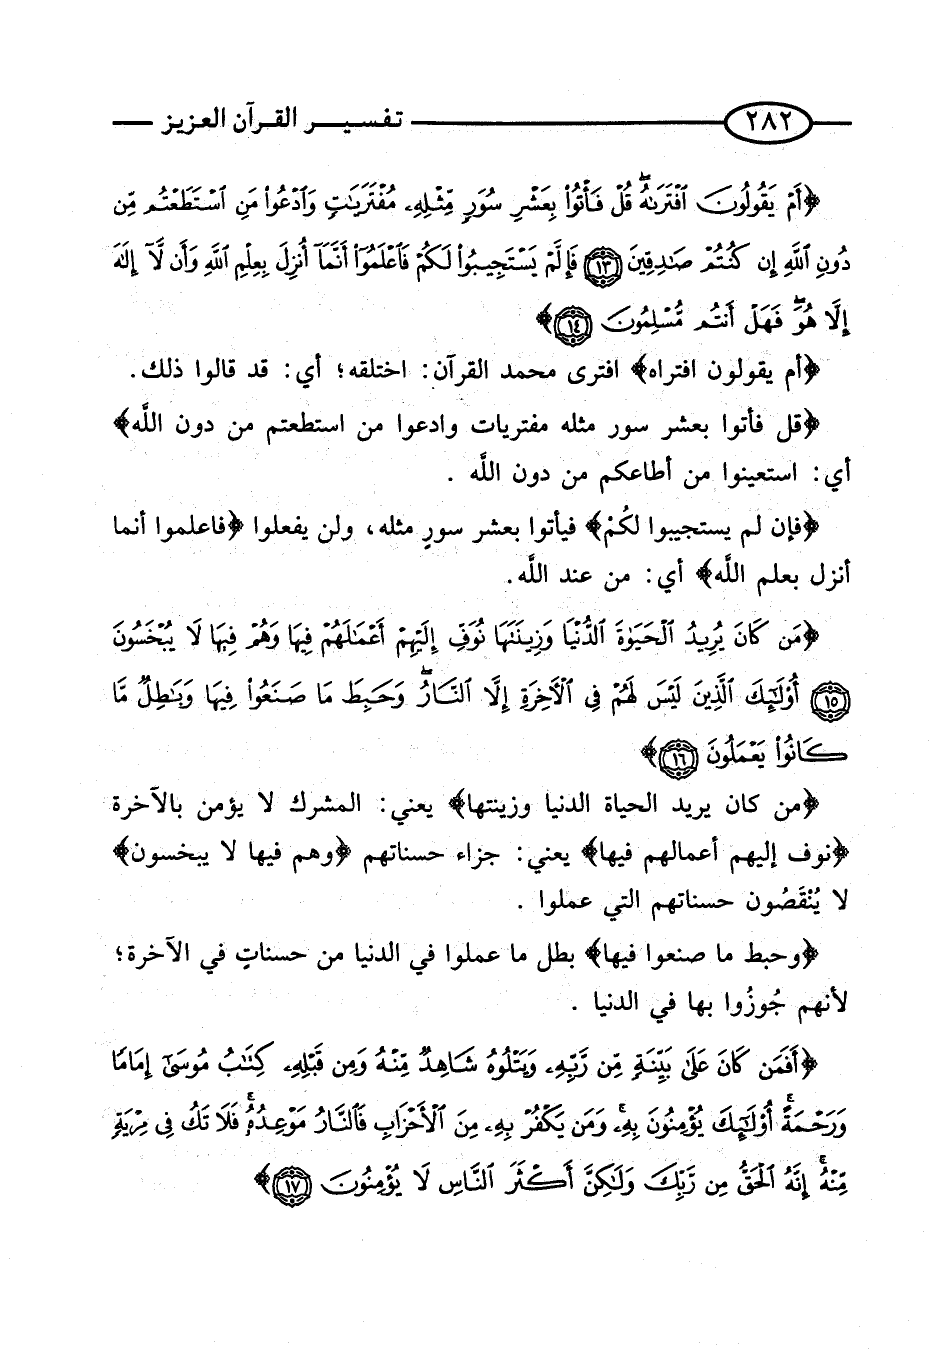 ٢٨٢ تفسير القرآن العزيز
﴿أَمْ يَقُولُونَ ٱفْتَرَىٰهُ ۖ قُلْ فَأْتُوا۟ بِعَشْرِ سُوَرٍ مِّثْلِهِۦ مُفْتَرَيَـٰتٍ وَٱدْعُوا۟ مَنِ ٱسْتَطَعْتُم مِّن
دُونِ ٱللَّهِ إِن كُنتُمْ صَـٰدِقِينَ ١٣ فَإِلَّمْ يَسْتَجِيبُوا۟ لَكُمْ فَٱعْلَمُوٓا۟ أَنَّمَآ أُنزِلَ بِعِلْمِ ٱللَّهِ وَأَن لَّآ إِلَـٰهَ
إِلَّا هُوَ ۖ فَهَلْ أَنتُم مُّسْلِمُونَ ١٤﴾
﴿أم يقولون افتراه﴾ افترى محمد القرآن: اختلقه؛ أي: قد قالوا ذلك.
﴿قل فأتوا بعشر سور مثله مفتريات وادعوا من استطعتم من دون اللَّه﴾
أي: استعينوا من أطاعكم من دون اللَّه .
﴿فإن لم يستجيبوا لكُمْ﴾ فيأتوا بعشر سورٍ مثله، ولن يفعلوا ﴿فاعلموا أنما
أنزل بعلم اللَّه﴾ أي: من عند اللَّه.
﴿مَن كَانَ يُرِيدُ ٱلْحَيَوٰةَ ٱلدُّنْيَا وَزِينَتَهَا نُوَفِّ إِلَيْهِمْ أَعْمَـٰلَهُمْ فِيهَا وَهُمْ فِيهَا لَا يُبْخَسُونَ
١٥ أُو۟لَـٰٓئِكَ ٱلَّذِينَ لَيْسَ لَهُمْ فِى ٱلْـَٔاخِرَةِ إِلَّا ٱلنَّارُ ۖ وَحَبِطَ مَا صَنَعُوا۟ فِيهَا وَبَـٰطِلٌ مَّا
كَانُوا۟ يَعْمَلُونَ ١٦﴾
﴿من كان يريد الحياة الدنيا وزينتها﴾ يعني: المشرك لا يؤمن بالآخرة
﴿نوف إليهم أعمالهم فيها﴾ يعني: جزاء حسناتهم ﴿وهم فيها لا يبخسون﴾
لا يُنْقَصُون حسناتهم التي عملوا .
﴿وحبط ما صنعوا فيها﴾ بطل ما عملوا في الدنيا من حسناتٍ في الآخرة؛
لأنهم جُوزُوا بها في الدنيا .
﴿أَفَمَن كَانَ عَلَىٰ بَيِّنَةٍ مِّن رَّبِّهِۦ وَيَتْلُوهُ شَاهِدٌ مِّنْهُ وَمِن قَبْلِهِۦ كِتَـٰبُ مُوسَىٰٓ إِمَامًا
وَرَحْمَةً ۚ أُو۟لَـٰٓئِكَ يُؤْمِنُونَ بِهِۦ ۚ وَمَن يَكْفُرْ بِهِۦ مِنَ ٱلْأَحْزَابِ فَٱلنَّارُ مَوْعِدُهُۥ ۚ فَلَا تَكُ فِى مِرْيَةٍ
مِّنْهُ ۚ إِنَّهُ ٱلْحَقُّ مِن رَّبِّكَ وَلَـٰكِنَّ أَكْثَرَ ٱلنَّاسِ لَا يُؤْمِنُونَ ١٧﴾